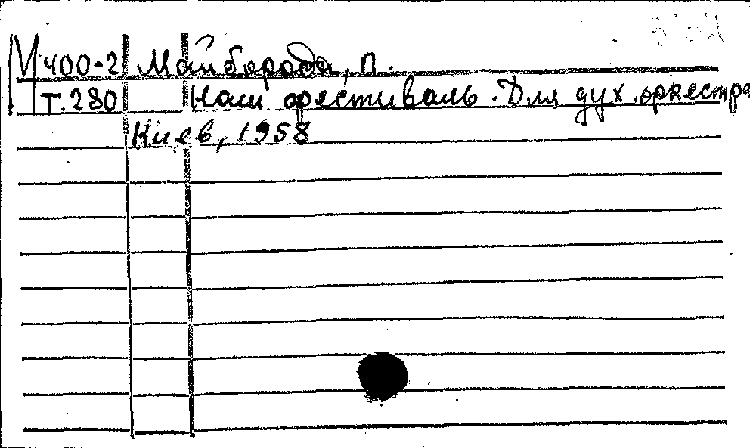 М 400-2 Майборода, П.
Т. 280 Наш фестиваль. Для дух. оркестра
Киев, 1958